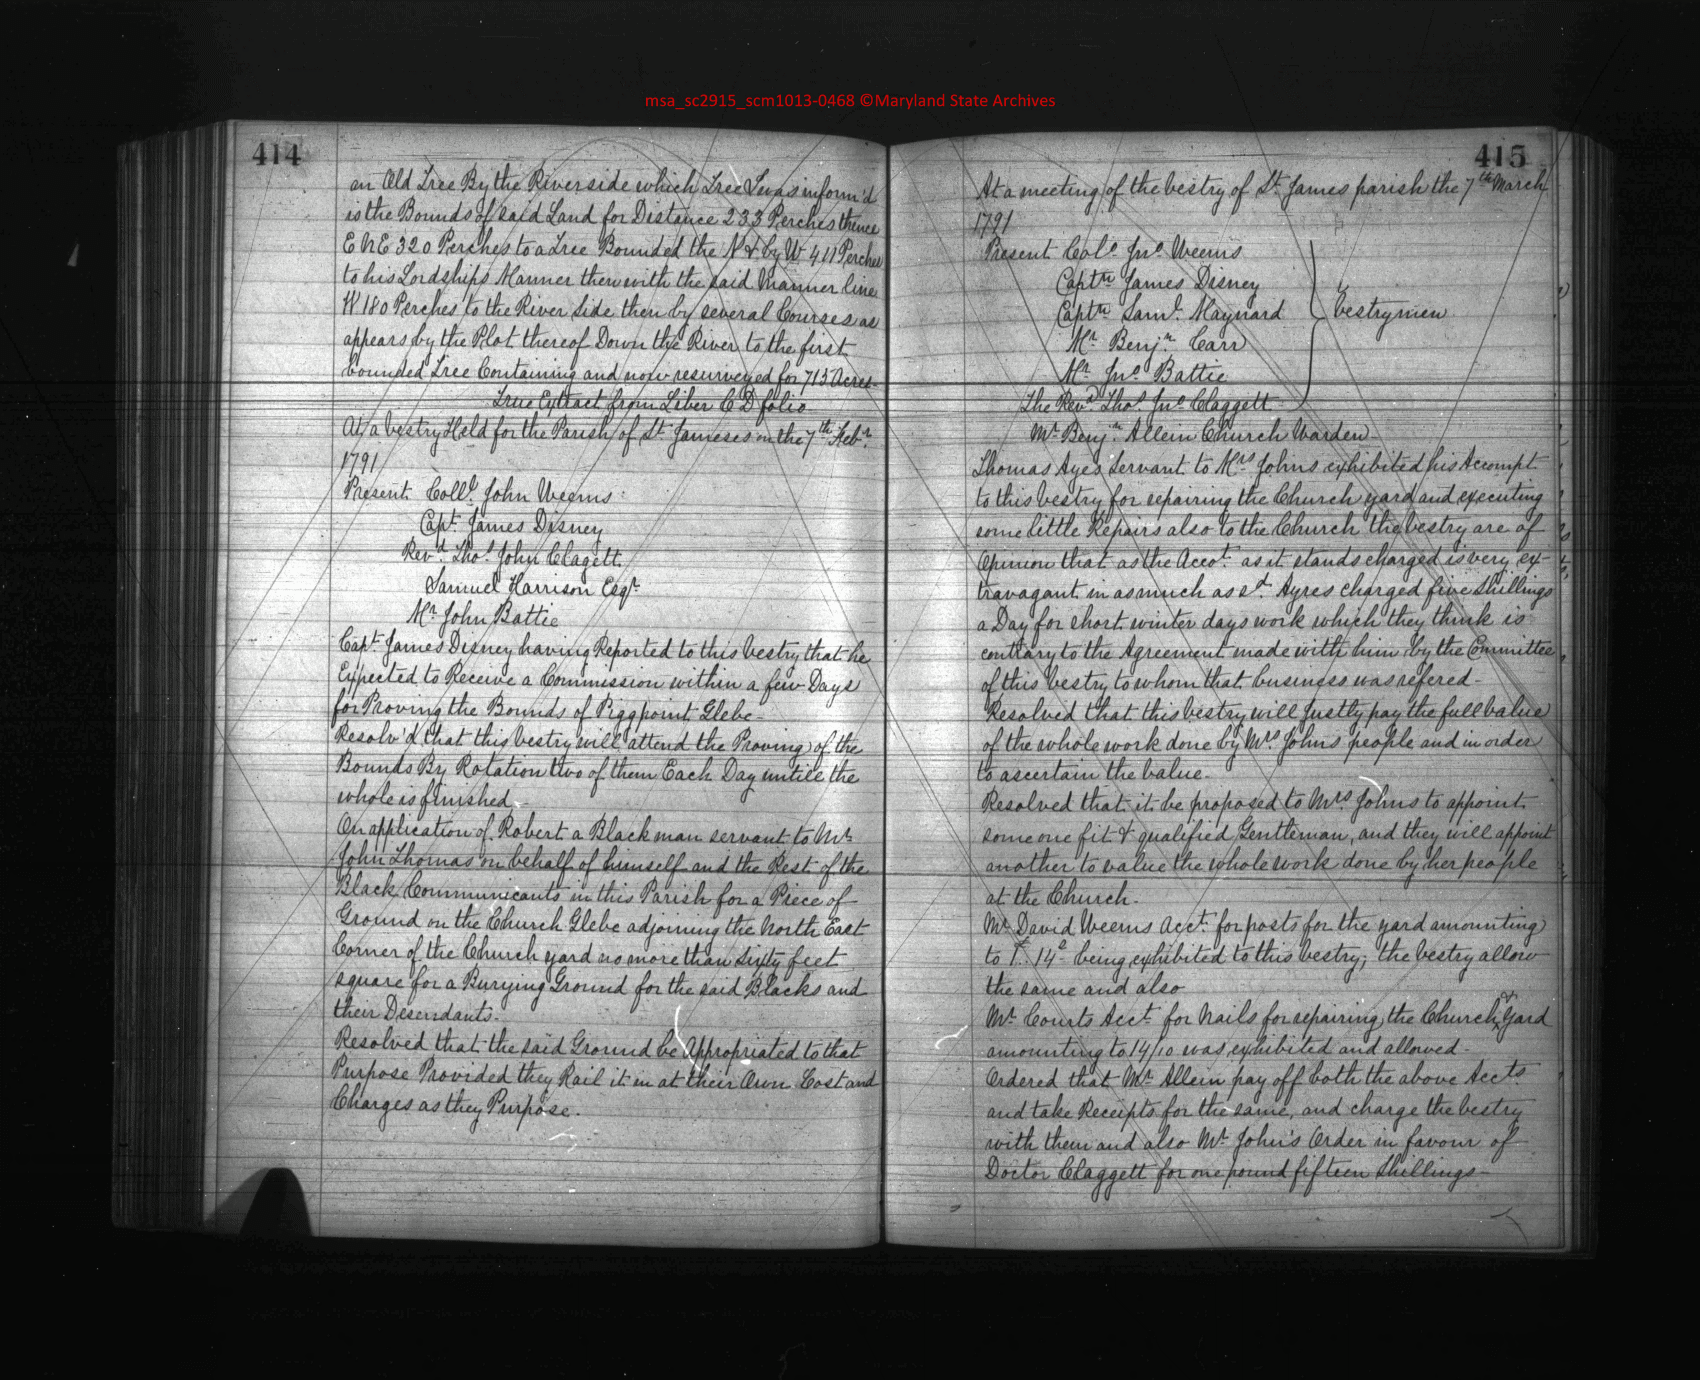 msa_sc2915_scm1013-0468 ©Maryland State Archives
414
an Old Tree By the River side which Tree I was inform'd
is the Bounds of said Land for Distance 233 Perches thence
E N E 320 Perches to a Tree Bounded the N & by W 411 Perches
to his Lordships Manner then with the said Manner line
W 180 Perches to the River Side then by several Courses as
appears by the Plot thereof Down the River to the first
bounded Tree Containing and now resurveyed for 715 Acres.
True Extract from Liber C D folio
At a vestry Held for the Parish of St. Jameses on the 7th Febr.
1791
Present Coll. John Weems
Capt. James Disney
Revd. Thos. John Clagett
Samuel Harrison Esqr.
Mr. John Battie
Capt. James Disney having Reported to this Vestry that he
Expected to Receive a Commission within a few Days
for Proving the Bounds of Piggpoint Glebe -
Resolv'd that this vestry will attend the Proving of the
Bounds By Rotation two of them Each Day untill the
whole is finished.
On application of Robert a Black man servant to Mr.
John Thomas on behalf of himself and the Rest of the
Black Communicants in this Parish for a Piece of
Ground on the Church Glebe adjoining the North East
Corner of the Church yard no more than Sixty feet
square for a Burying Ground for the said Blacks and
their Desendants.
Resolved that the said Ground be Appropriated to that
Purpose Provided they Rail it in at their Own Cost and
Charges as they Purpose.
415
At a meeting of the vestry of St. James parish the 7th March
1791
Present Colo. Jno. Weems
Captn. James Disney
Captn. Saml. Maynard
Vestrymen
Mr. Benjn. Carr
Mr. Jno. Battie
The Revd. Thos. Jno. Claggett
Mr. Benjn. Allein Church Warden
Thomas Ayes Servant to Mrs Johns exhibited his Accompt
to this vestry for repairing the Church yard and executing
some little Repairs also to the Church the vestry are of
Opinion that as the Accot. as it stands charged is very ex-
travagant in as much as sd. Ayres charged five Shillings
a Day for short winter days work which they think is
contrary to the Agreement made with him by the Committee
of this vestry to whom that business was refered -
Resolved that this vestry will justly pay the full value
of the whole work done by Mrs Johns people and in order
to ascertain the value.
Resolved that it be proposed to Mrs Johns to appoint
some one fit & qualified Gentleman, and they will appoint
another to value the whole work done by her people
at the Church -
Mr. David Weems Acct. for posts for the yard amounting
to being exhibited to this vestry; the vestry allow
the same and also
Mr. Courts Acct. for Nails for repairing the Church & Yard
amounting to 14/10 was exhibited and allowed -
Ordered that Mr. Allein pay off both the above Accts
and take Receipts for the same, and charge the vestry
with them and also Mr. John's Order in favour of
Doctor Claggett for one pound fifteen Shillings -